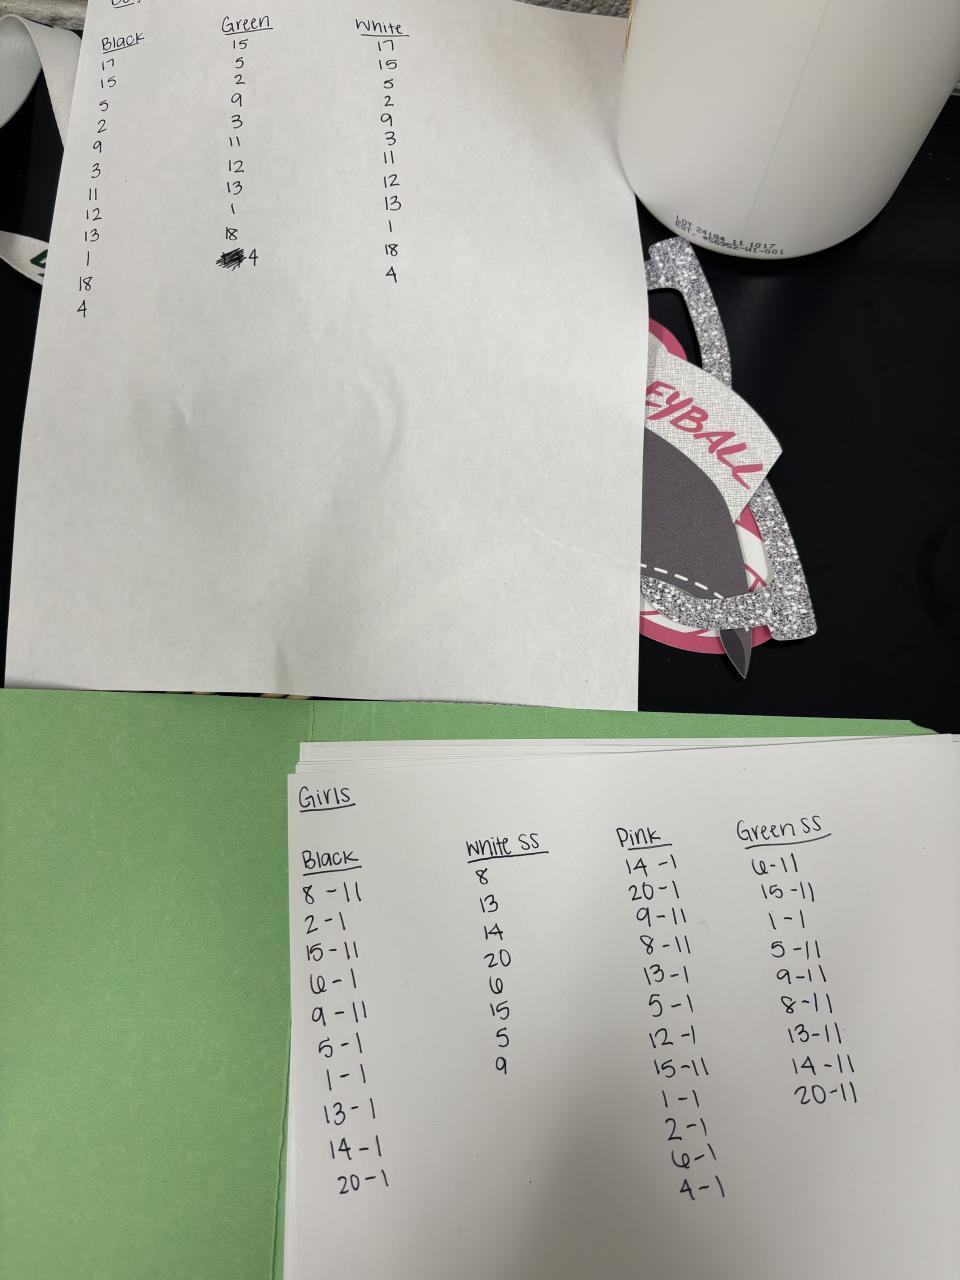 Black
17
15
5
2
9
3
11
12
13
1
18
4
Green
15
5
2
9
3
11
12
13
1
18
4
White
17
15
5
2
9
3
11
12
13
1
18
4
LOT 24184 11 1017
EST. #56952-WI-001
EYBALL
Girls
Black
8-11
2-1
15-11
6-1
9-11
5-1
1-1
13-1
14-1
20-1
White SS
8
13
14
20
6
15
5
9
Pink
14-1
20-1
9-11
8-11
13-1
5-1
12-1
15-11
1-1
2-1
6-1
4-1
Green SS
6-11
15-11
1-1
5-11
9-11
8-11
13-11
14-11
20-11